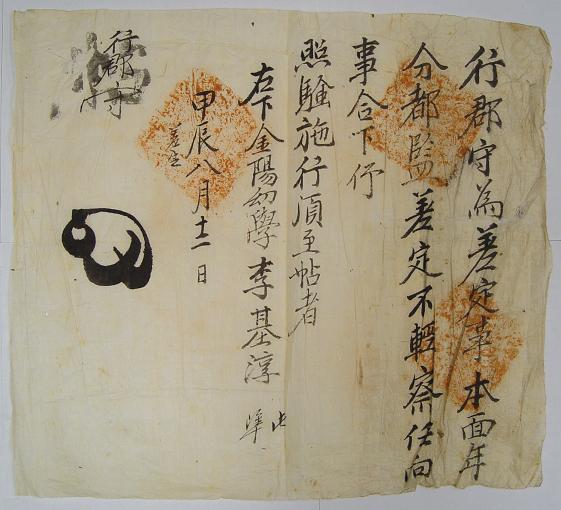 行郡守為差定事本面年
分都監差定不輕察任向
事合下仰
照驗施行須至帖者
右下金陽幼學李基淳
此準
甲辰八月十二日
差定
行郡守